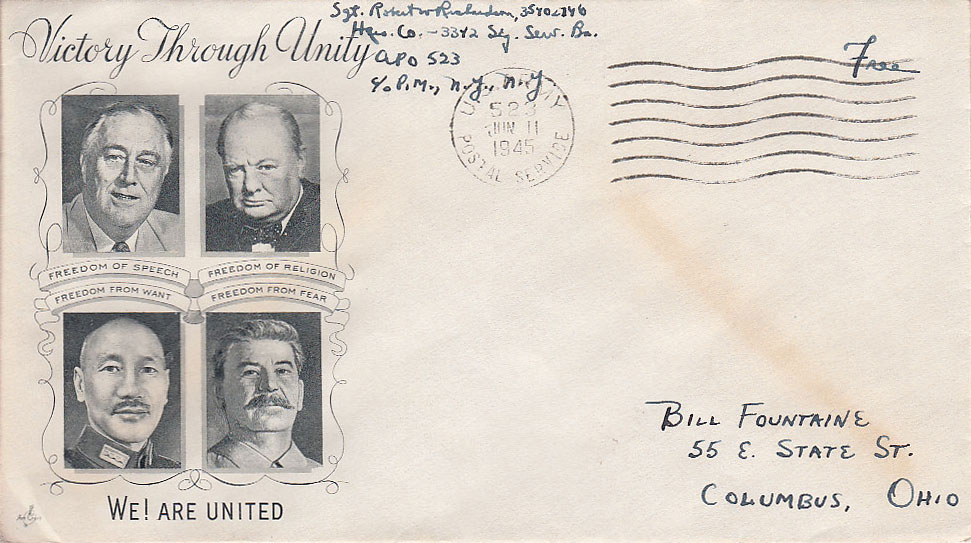 Victory Through Unity
Sgt. Robert W Richardson, 35402746
Hqs. Co. - 3342 Sig. Serv. Bn.
APO 523
c/o P.M., N.Y., N.Y
Free
U.S. ARMY
523
JUN 11
1945
POSTAL SERVICE
FREEDOM OF SPEECH
FREEDOM OF RELIGION
FREEDOM FROM WANT
FREEDOM FROM FEAR
BILL FOUNTAINE
55 E. STATE ST.
COLUMBUS, OHIO
WE! ARE UNITED